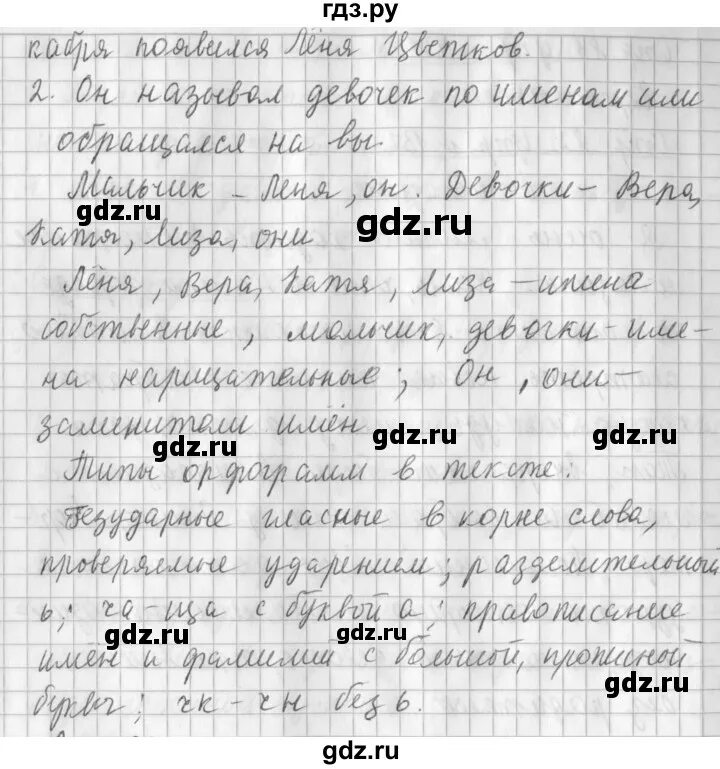 гдз.ру
кабря появился Лёня Цветков.
2. Он называл девочек по именам или
обращался на вы.
Мальчик - Леня, он. Девочки - Вера,
gdz.ru
gdz.ru
Катя, Лиза, они
Лёня, Вера, Катя, Лиза - имена
собственные, мальчик, девочки - име-
на нарицательные; Он, они -
заменители имён
gdz.ru
gdz.ru
gdz.ru
Типы орфограмм в тексте:
Безударные гласные в корне слова,
проверяемые ударением; разделительный
ь; ча-ща с буквой а; правописание
gdz.ru
gdz.ru
имен и фамилий с большой, прописной
gdz.ru
буквы; чк - чн без ь.
gdz.ru
gdz.ru